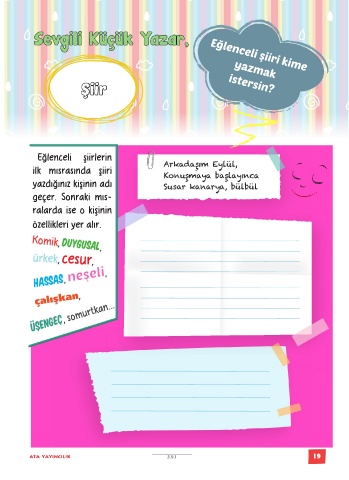 Sevgili Küçük Yazar,
Eğlenceli şiiri kime
yazmak
istersin?
Şiir
Eğlenceli şiirlerin
ilk mısrasında şiiri
yazdığınız kişinin adı
geçer. Sonraki mıs-
ralarda ise o kişinin
özellikleri yer alır.
Komik, DUYGUSAL,
ürkek, cesur,
HASSAS, neşeli,
çalışkan,
ÜŞENGEÇ, somurtkan...
Arkadaşım Eylül,
Konuşmaya başlayınca
Susar kanarya, bülbül
ATA YAYINCILIK
19